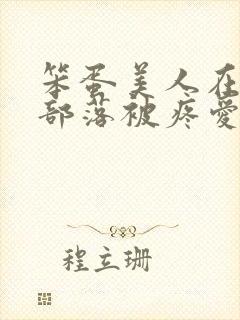 笨蛋美人在
部落被疼爱
程立珊